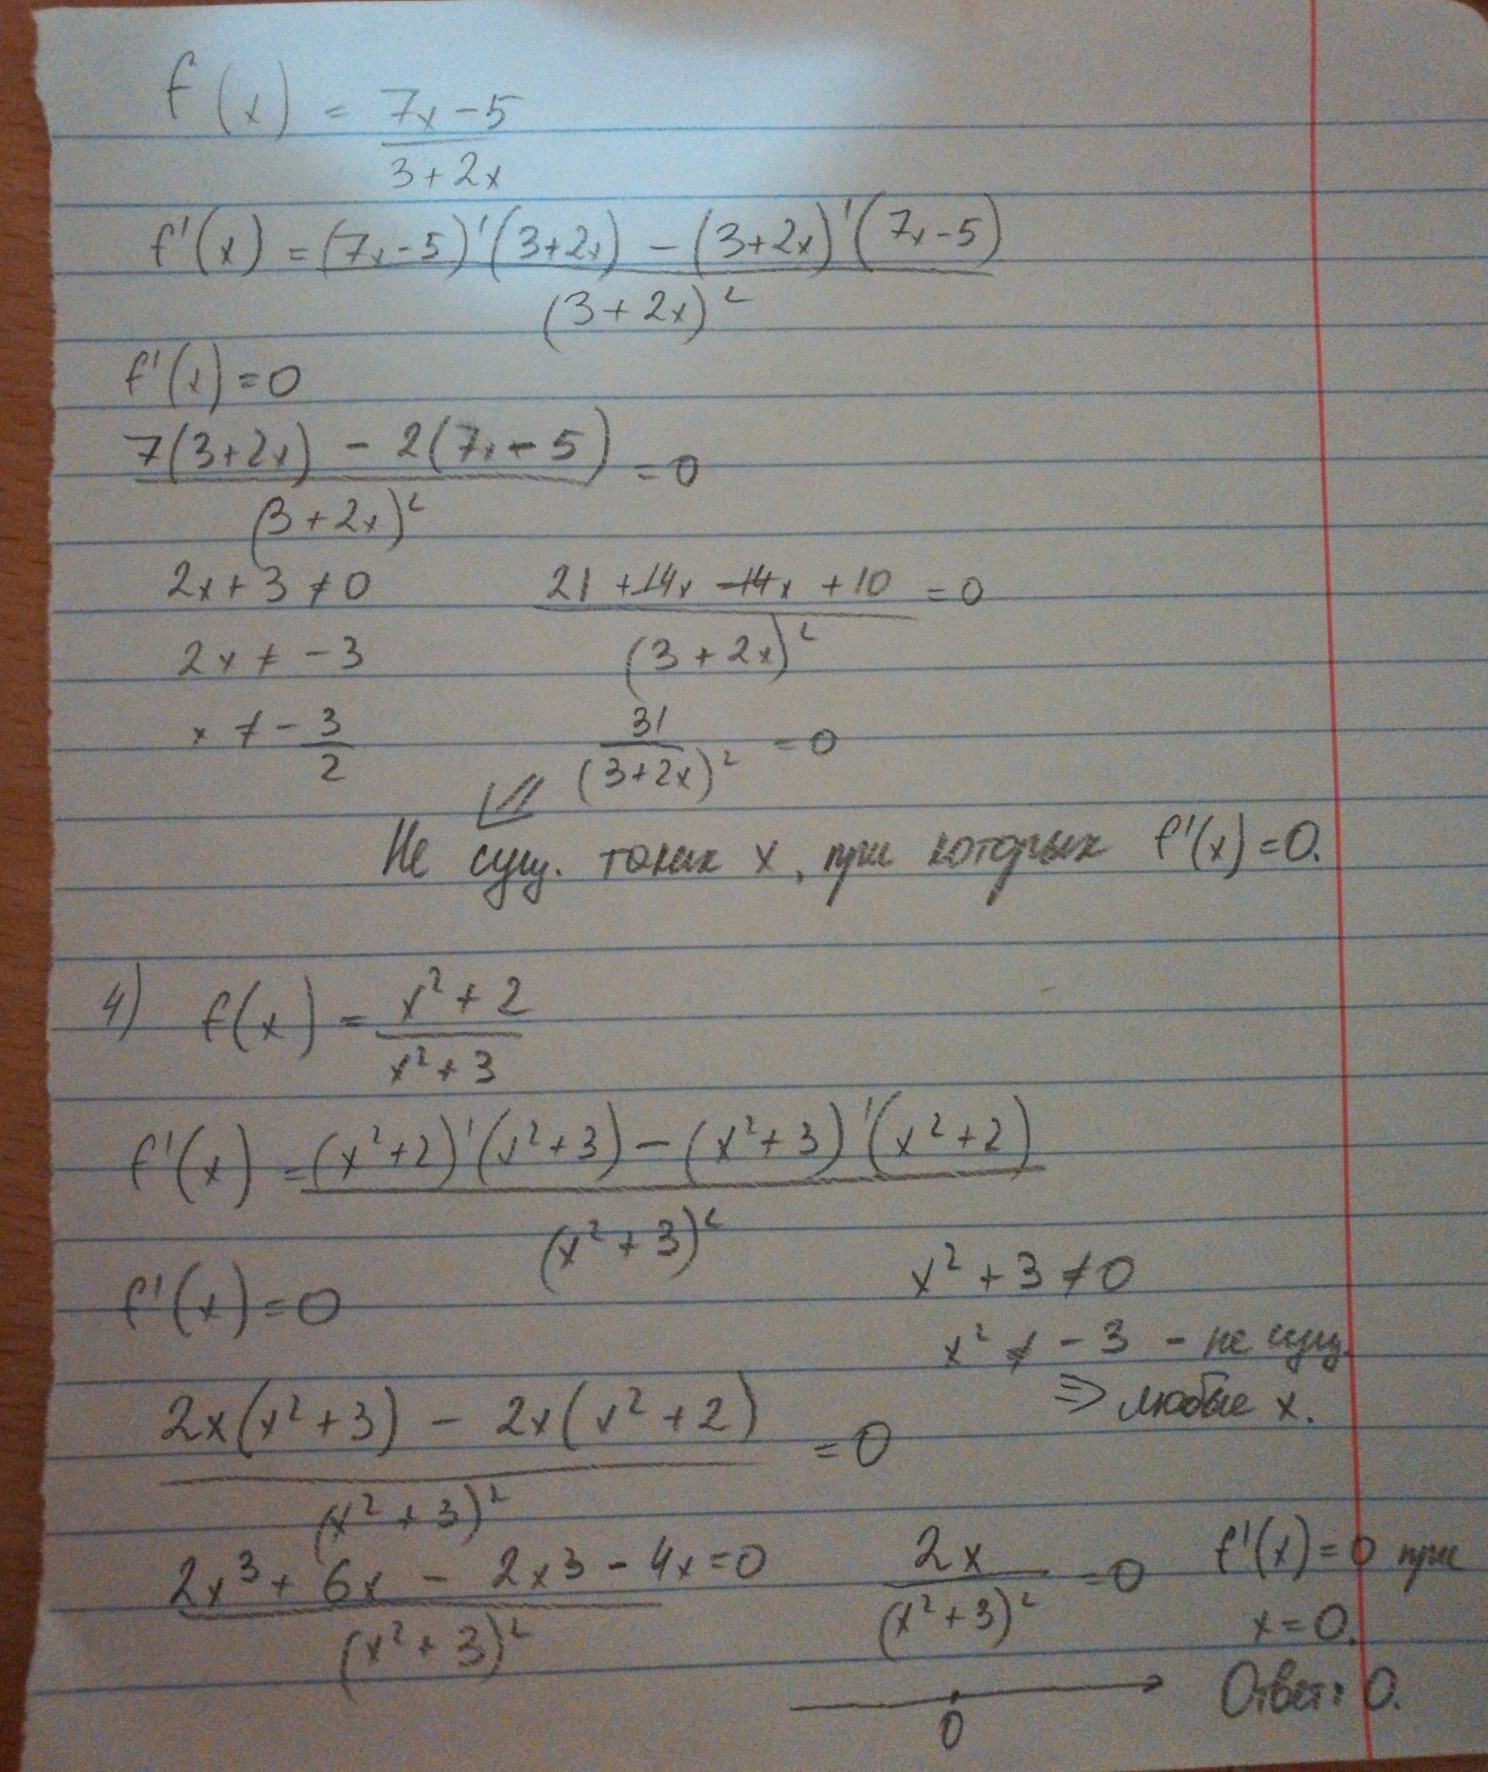 f(x) = (7x-5)/(3+2x)
f'(x) = ((7x-5)'(3+2x) - (3+2x)'(7x-5))/(3+2x)²
f'(x)=0
(7(3+2x) - 2(7x-5))/(3+2x)² = 0
2x+3≠0
(21+14x-14x+10)/(3+2x)² = 0
2x ≠ -3
x ≠ -3/2
31/(3+2x)² = 0
⇙
Не сущ. таких x, при которых f'(x)=0.
4) f(x) = (x²+2)/(x²+3)
f'(x) = ((x²+2)'(x²+3) - (x²+3)'(x²+2))/(x²+3)²
f'(x)=0
x²+3≠0
x² ≠ -3 - не сущ.
⇒ любые x.
(2x(x²+3) - 2x(x²+2))/(x²+3)² = 0
(2x³+6x-2x3-4x=0)/(x²+3)²
2x/(x²+3)² = 0
f'(x)=0 при
x=0.
0
Ответ: 0.